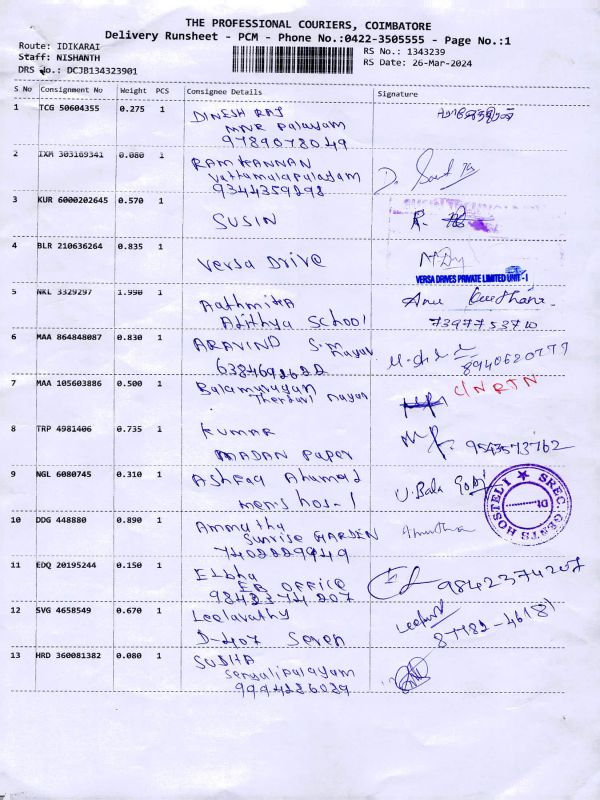 THE PROFESSIONAL COURIERS, COIMBATORE
Delivery Runsheet - PCM - Phone No.:0422-3505555 - Page No.:1
Route: IDIKARAI
Staff: NISHANTH
DRS No.: DCJB134323901
RS No.: 1343239
RS Date: 26-Mar-2024
S No Consignment No Weight PCS Consignee Details Signature
1 TCG 50604355 0.275 1 DINESH RAJ
MNR Palayam
9789078049
2 IXM 303169341 0.080 1 RAM KANNAN
Vattamalapalayam
9344359298
3 KUR 6000202645 0.570 1 SUSIN
4 BLR 210636264 0.835 1 Versa Drive
VERSA DRIVES PRIVATE LIMITED UNIT - I
5 NKL 3329297 1.990 1 Aathmika
Adithya School
7397753710
6 MAA 864848087 0.830 1 ARAVIND S.M
nayar
6384692622
8940620777
7 MAA 105603886 0.500 1 Balamurugan
nayar
C/N RTN
8 TRP 4981406 0.735 1 KUMAR
MADAN Paper
9543573762
9 NGL 6080745 0.310 1 Ashfaq Ahamad
men's hos-1
U. Bala Gopi
SREC. GENTS HOSTEL I
10 DDG 448880 0.890 1 Ammutha
Sunrise GARDEN
7402229949
Amutha
11 EDQ 20195244 0.150 1 Elbha
EB OFFICE
9842374207
9842374207
12 SVG 4658549 0.670 1 Leelavathy
D-407 Seven
87782-46181
13 HRD 360081382 0.080 1 SUDHA
Sengalipalayam
9994286029